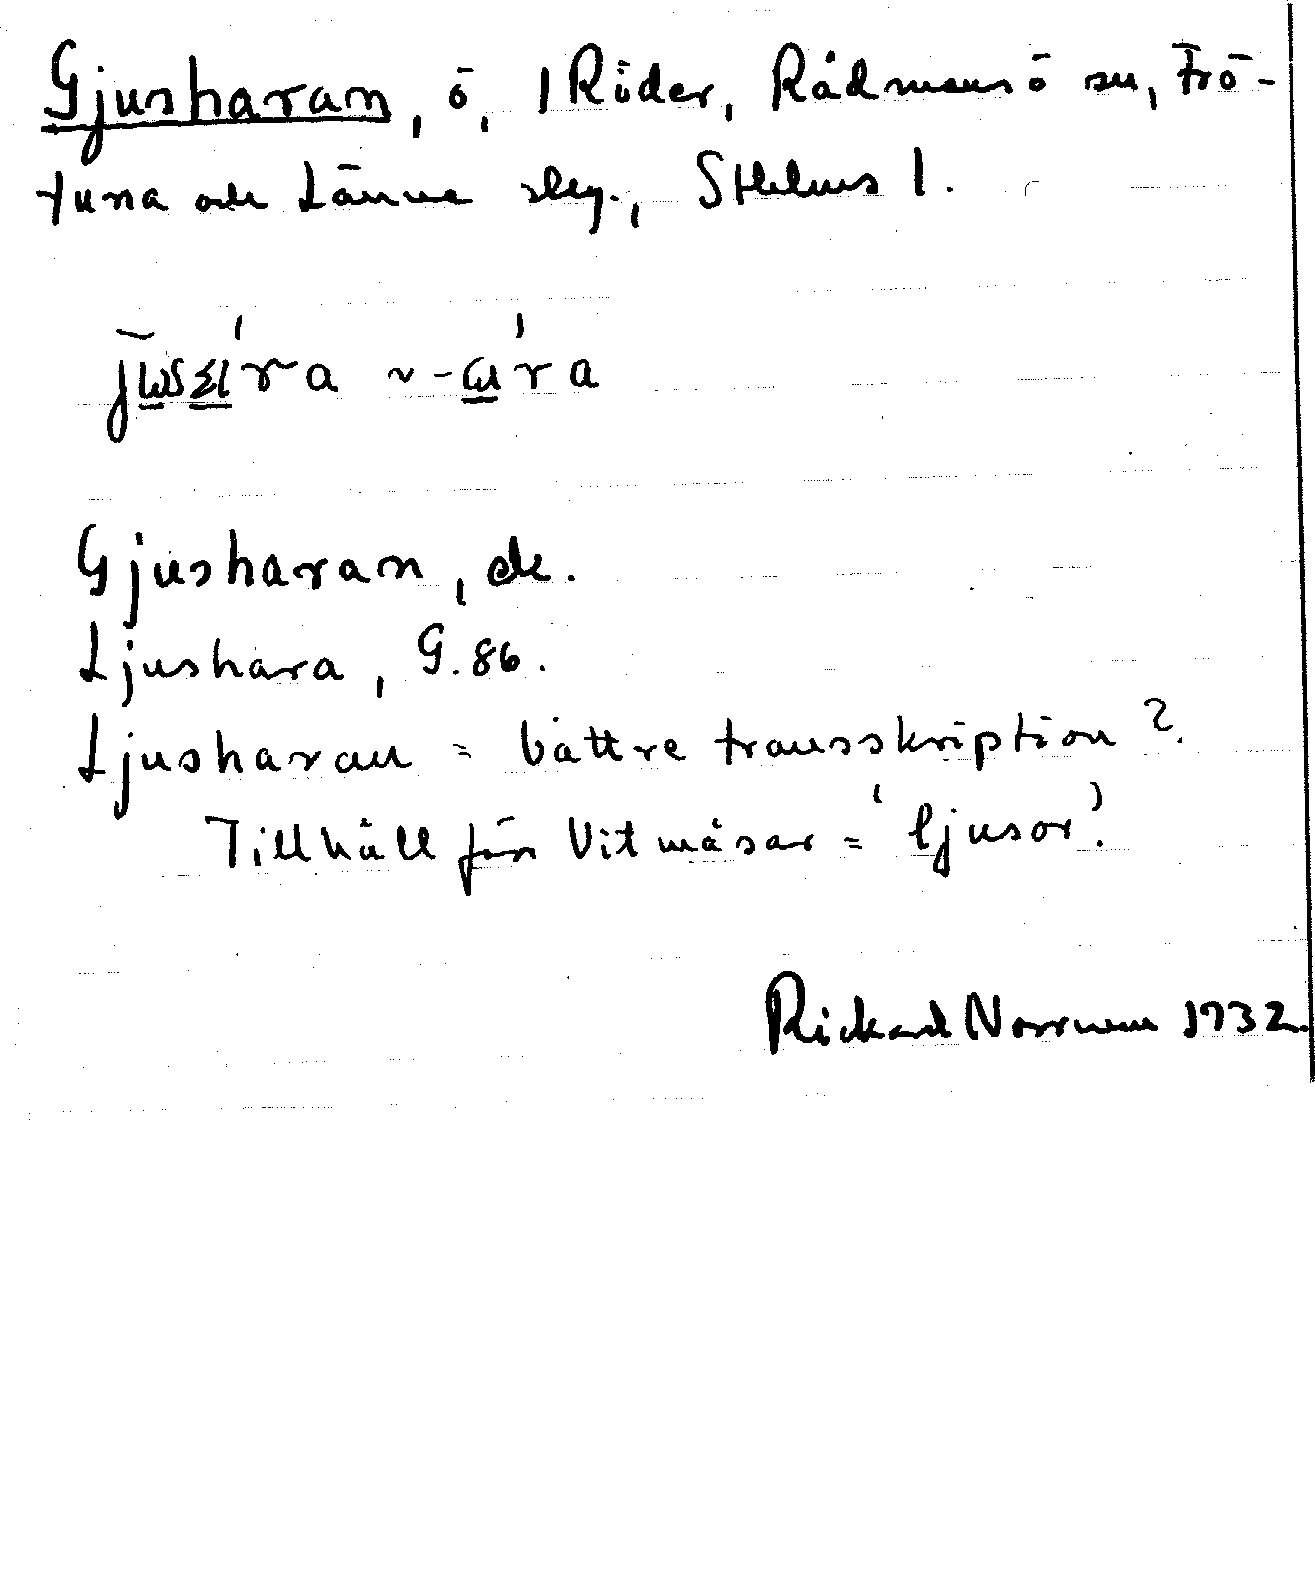 Gjusharan, ö, 1 Röder, Rådmansö sn, Frö-
tuna och Länna slg., Sthlms l.
Gjusharan, ek.
Ljushara, G. 86.
Ljusharan = bättre transskription?.
Tillhåll för Vitmåsar = 'ljusor'?
Rickard Norrman 1932.